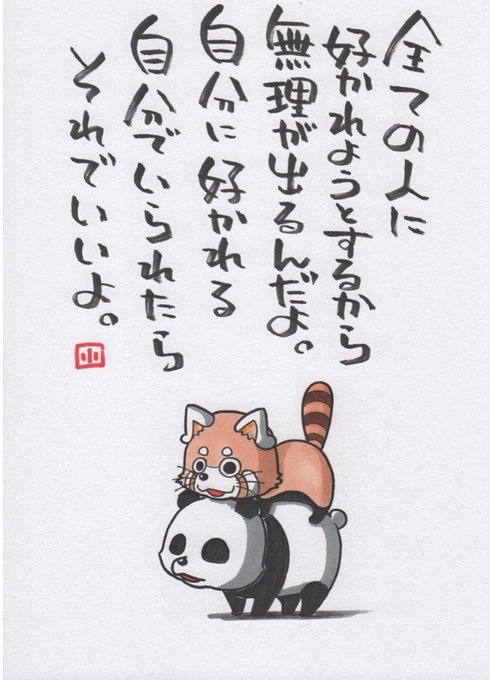 全ての人に
好かれようとするから
無理が出るんだよ。
自分に好かれる
自分でいられたら
それでいいよ。
小